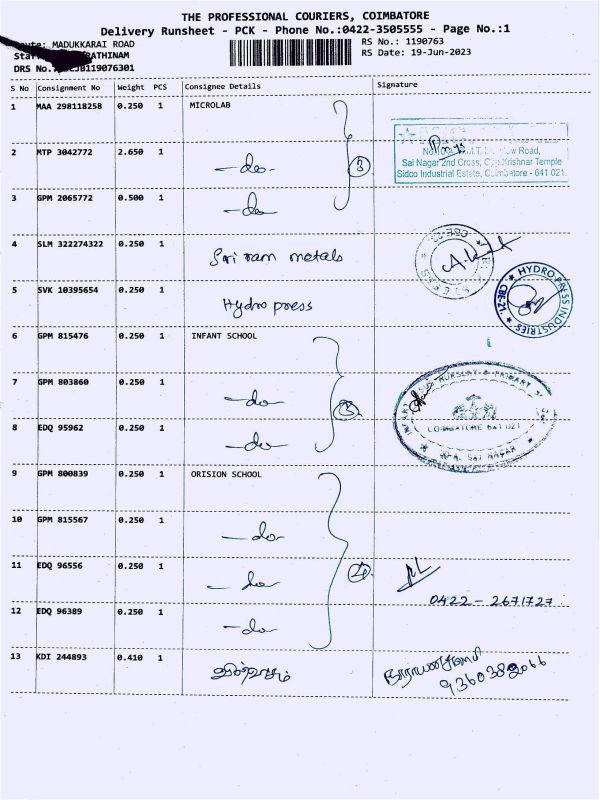 THE PROFESSIONAL COURIERS, COIMBATORE
Delivery Runsheet - PCK - Phone No.:0422-3505555 - Page No.:1
MADUKKARAI ROAD
RS No.: 1190763
RATHINAM
RS Date: 19-Jun-2023
DRS No.
S No Consignment No Weight PCS Consignee Details Signature
1 MAA 298118258 0.250 1 MICROLAB
2 MTP 3042772 2.650 1 -do-
3 GPM 2065772 0.500 1 -do
3
Road,
Sai Nagar 2nd Cross, Krishnar Temple
Sidco Industrial Estate, Coimbatore - 641 021.
4 SLM 322274322 0.250 1 Sri ram metals
5 SVK 10395654 0.250 1 Hydro press
HYDRO PRESS INDUSTRIES
CBE-21.
6 GPM 815476 0.250 1 INFANT SCHOOL
7 GPM 803860 0.250 1 -do-
8 EDQ 95962 0.250 1 -do-
3
NURSERY & PRIMARY
COIMBATORE 641 021
SAI NAGAR
9 GPM 800839 0.250 1 ORISION SCHOOL
10 GPM 815567 0.250 1 -do-
11 EDQ 96556 0.250 1 -do-
4
0422-2671727
12 EDQ 96389 0.250 1 -do-
13 KDI 244893 0.410 1